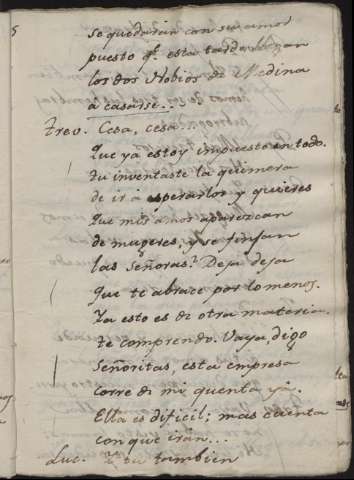 5
se quedarian con sus amos
puesto q.e esta tarde llegan
los dos Nobios de Medina
a casarse...
Trev. Cesa, cesa...
Que ya estoy impuesto en todo.
tu inventaste la quimera
de ir á esperarlos y quieres
que mis amos aparezcan
de mugeres, y se finjan
las Señoras? Deja deja
que te abrace por lo menos.
Ya esto es de otra materia.
te comprendo. Vaya digo
Señoritas, esta empresa
corre de mi quenta ya.
Ella es dificil; mas cuenta
con que irán...
Luc. Y tu tambien